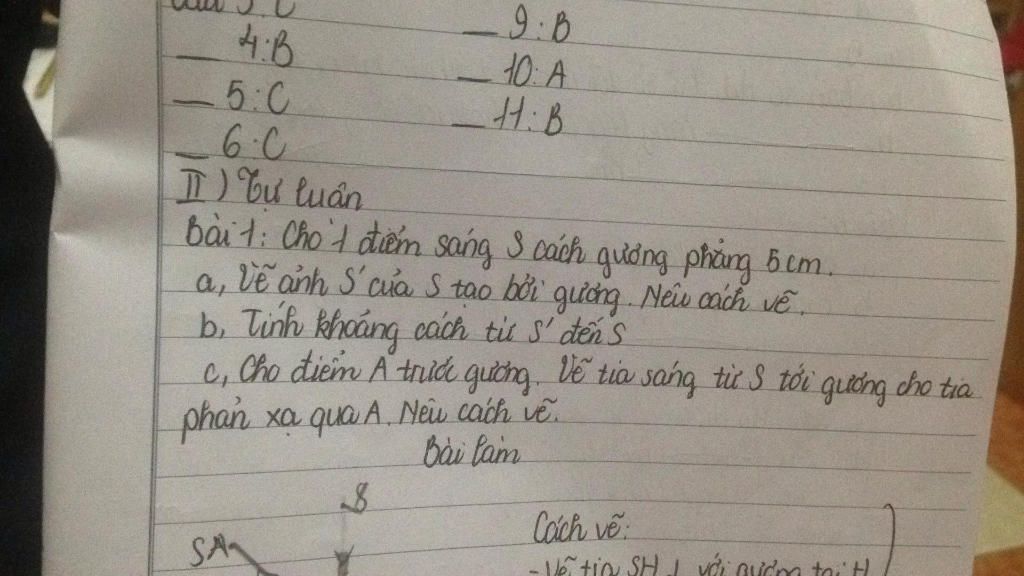 Câu 3: C
— 4: B
— 5: C
— 6: C
— 9: B
— 10: A
— 11: B
II) Tự luận
Bài 1: Cho 1 điểm sáng S cách gương phẳng 5 cm.
a, Vẽ ảnh S' của S tạo bởi gương. Nêu cách vẽ.
b, Tính khoảng cách từ S' đến S
c, Cho điểm A trước gương. Vẽ tia sáng từ S tới gương cho tia
phản xạ qua A. Nêu cách vẽ.
Bài làm
S
SA
Cách vẽ:
- Vẽ tia SH ⊥ với gương tại H